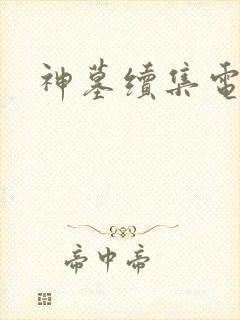 神墓續集電
帝中帝